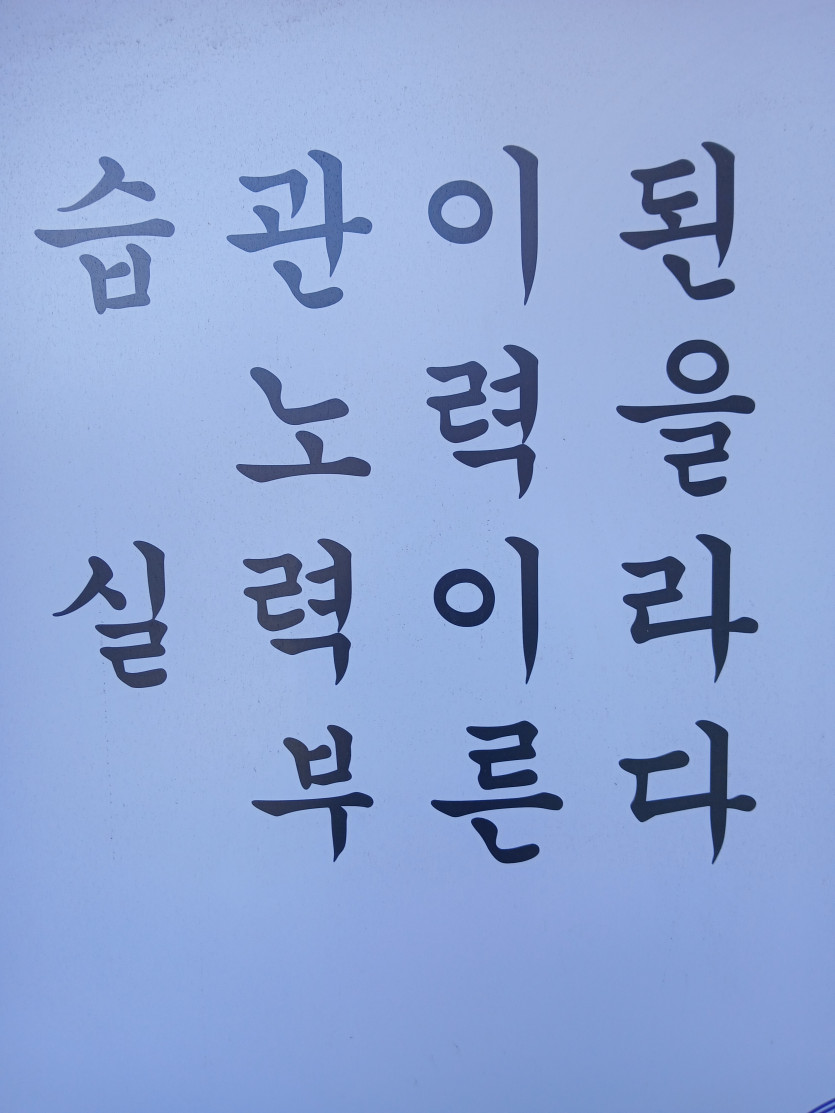 습관이된
노력을
실력이라
부른다